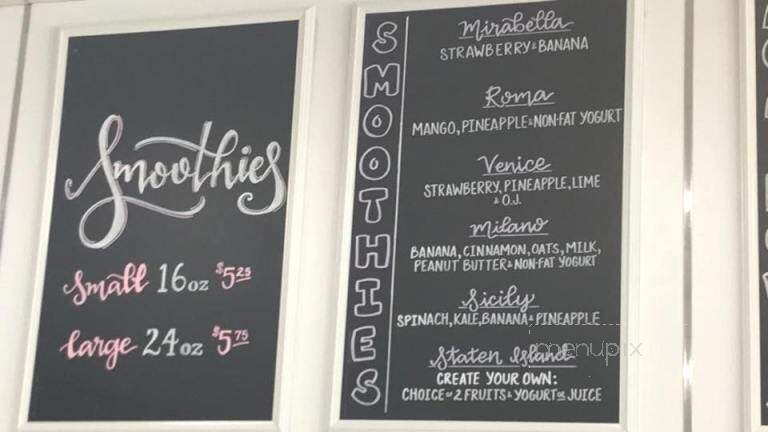 Smoothies
Small 16oz $5.25
Large 24oz $5.75
SMOOTHIES
Mirabella
STRAWBERRY & BANANA
Roma
MANGO, PINEAPPLE & NON-FAT YOGURT
Venice
STRAWBERRY, PINEAPPLE, LIME
& O.J.
Milano
BANANA, CINNAMON, OATS, MILK,
PEANUT BUTTER & NON-FAT YOGURT
Sicily
SPINACH, KALE, BANANA & PINEAPPLE
Staten Island
CREATE YOUR OWN:
CHOICE OF 2 FRUITS & YOGURT OR JUICE
menupix